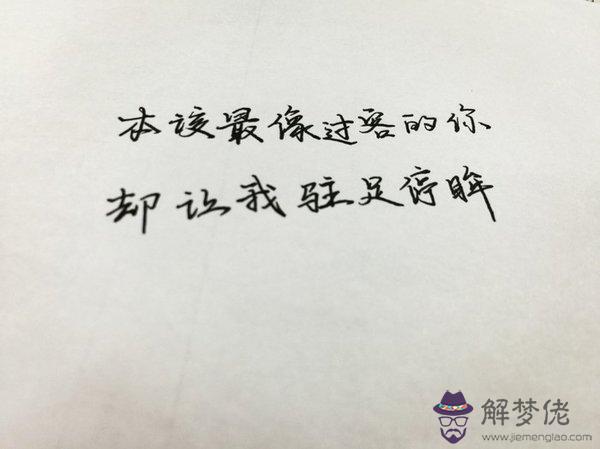 本该最像过客的你
却让我驻足停眸
解梦佬
www.jiemenglao.com